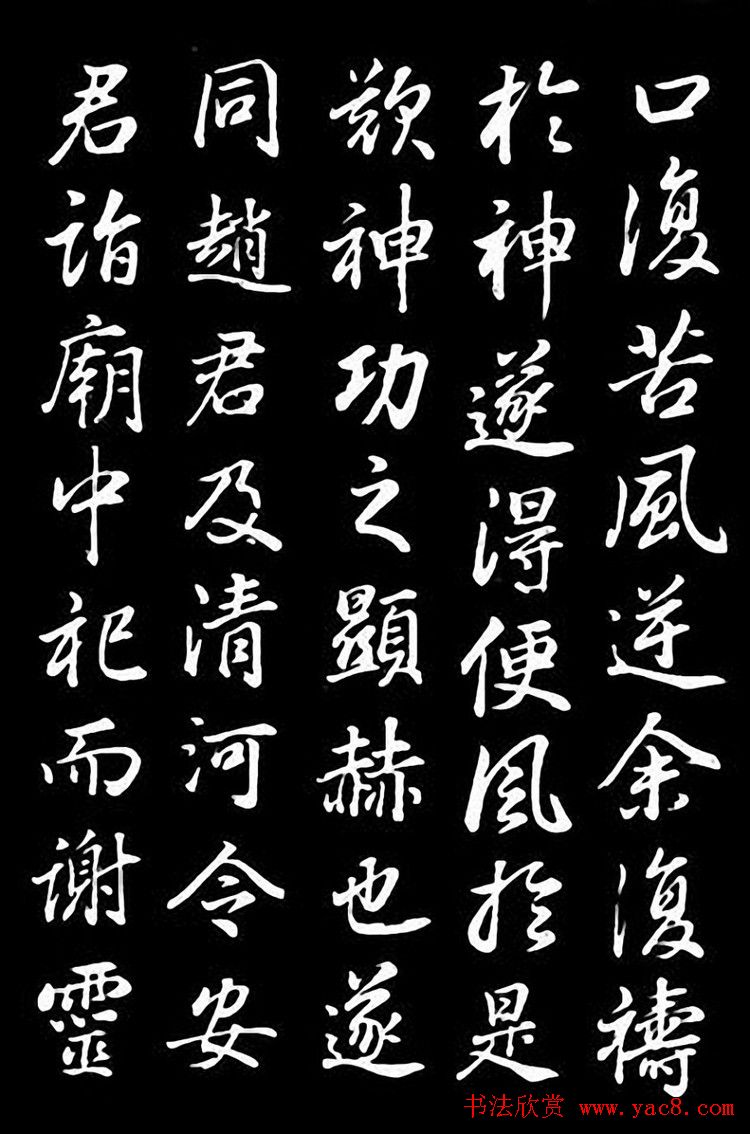 口復苦風逆余復禱
於神遂得便風於是
歎神功之顯赫也遂
同趙君及清河令安
君詣廟中祀而謝靈
书法欣赏 www.yac8.com